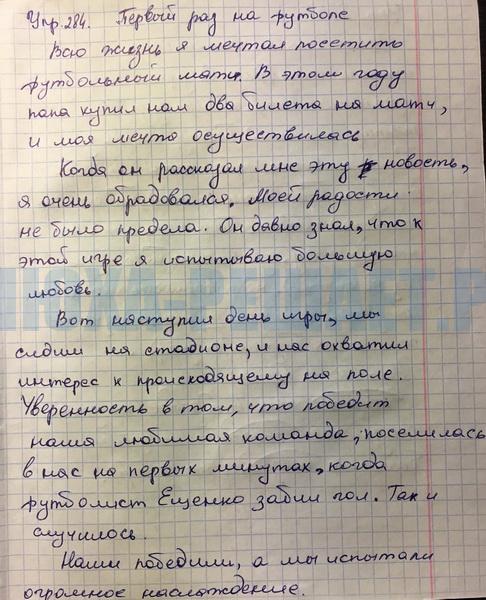 Упр. 284. Первый раз на футболе
Всю жизнь я мечтал посетить
футбольный матч. В этом году
папа купил нам два билета на матч,
и моя мечта осуществилась
Когда он рассказал мне эту новость,
я очень обрадовался. Моей радости
не было предела. Он давно знал, что к
этой игре я испытываю большую
любовь.
Вот наступил день игры, мы
сидим на стадионе, и нас охватил
интерес к происходящему на поле.
Уверенность в том, что победит
наша любимая команда, поселилась
в нас на первых минутах, когда
футболист Ещенко забил гол. Так и
случилось.
Наши победили, а мы испытали
огромное наслаждение.